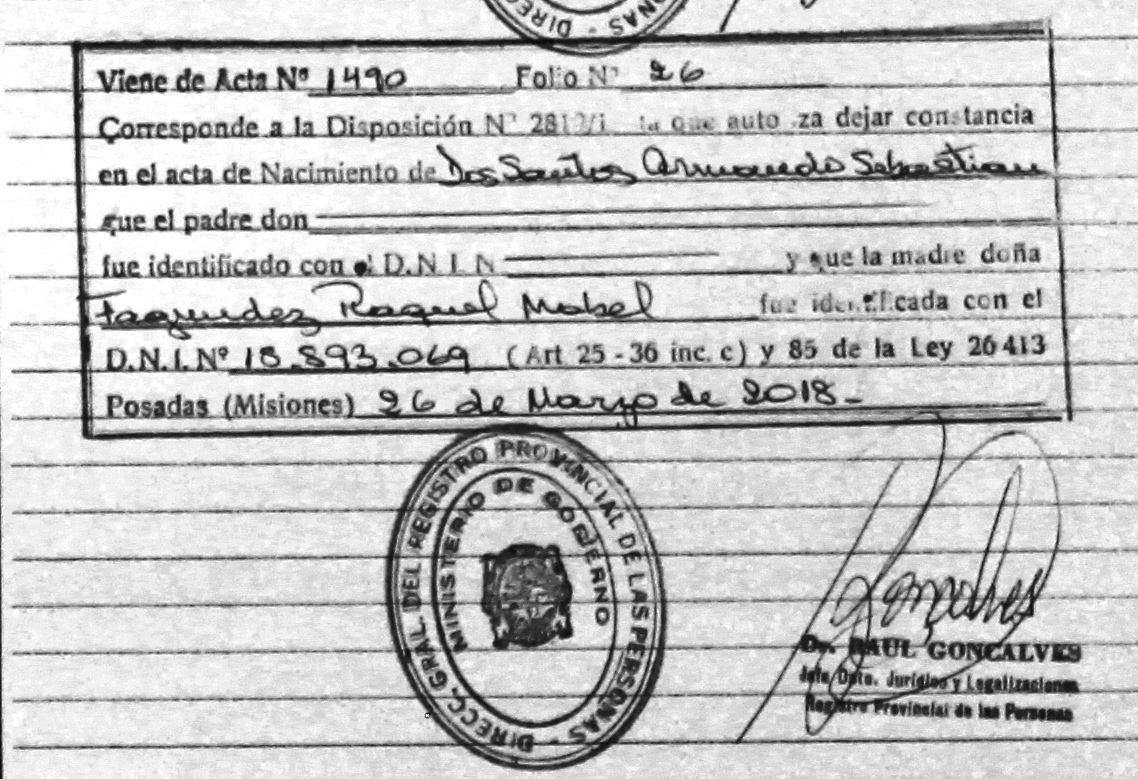 DIREC
ONAS -
Viene de Acta Nº 1490 Folio Nº 26
Corresponde a la Disposición Nº 2812/ la que autoriza dejar constancia
en el acta de Nacimiento de Dos Santos Armando Sebastian
que el padre don
fue identificado con el D.N.I. N y que la madre doña
Fagundez Raquel Mabel fue identificada con el
D.N.I. Nº 18.893.069 (Art. 25 - 36 inc. c) y 85 de la Ley 26413
Posadas (Misiones) 26 de Marzo de 2018-
DIRECC. GRAL. DEL REGISTRO PROVINCIAL DE LAS PERSONAS -
MINISTERIO DE GOBIERNO
Gonçalves
Dr. RAUL GONCALVES
Jefe Dpto. Jurídico y Legalizaciones
Registro Provincial de las Personas